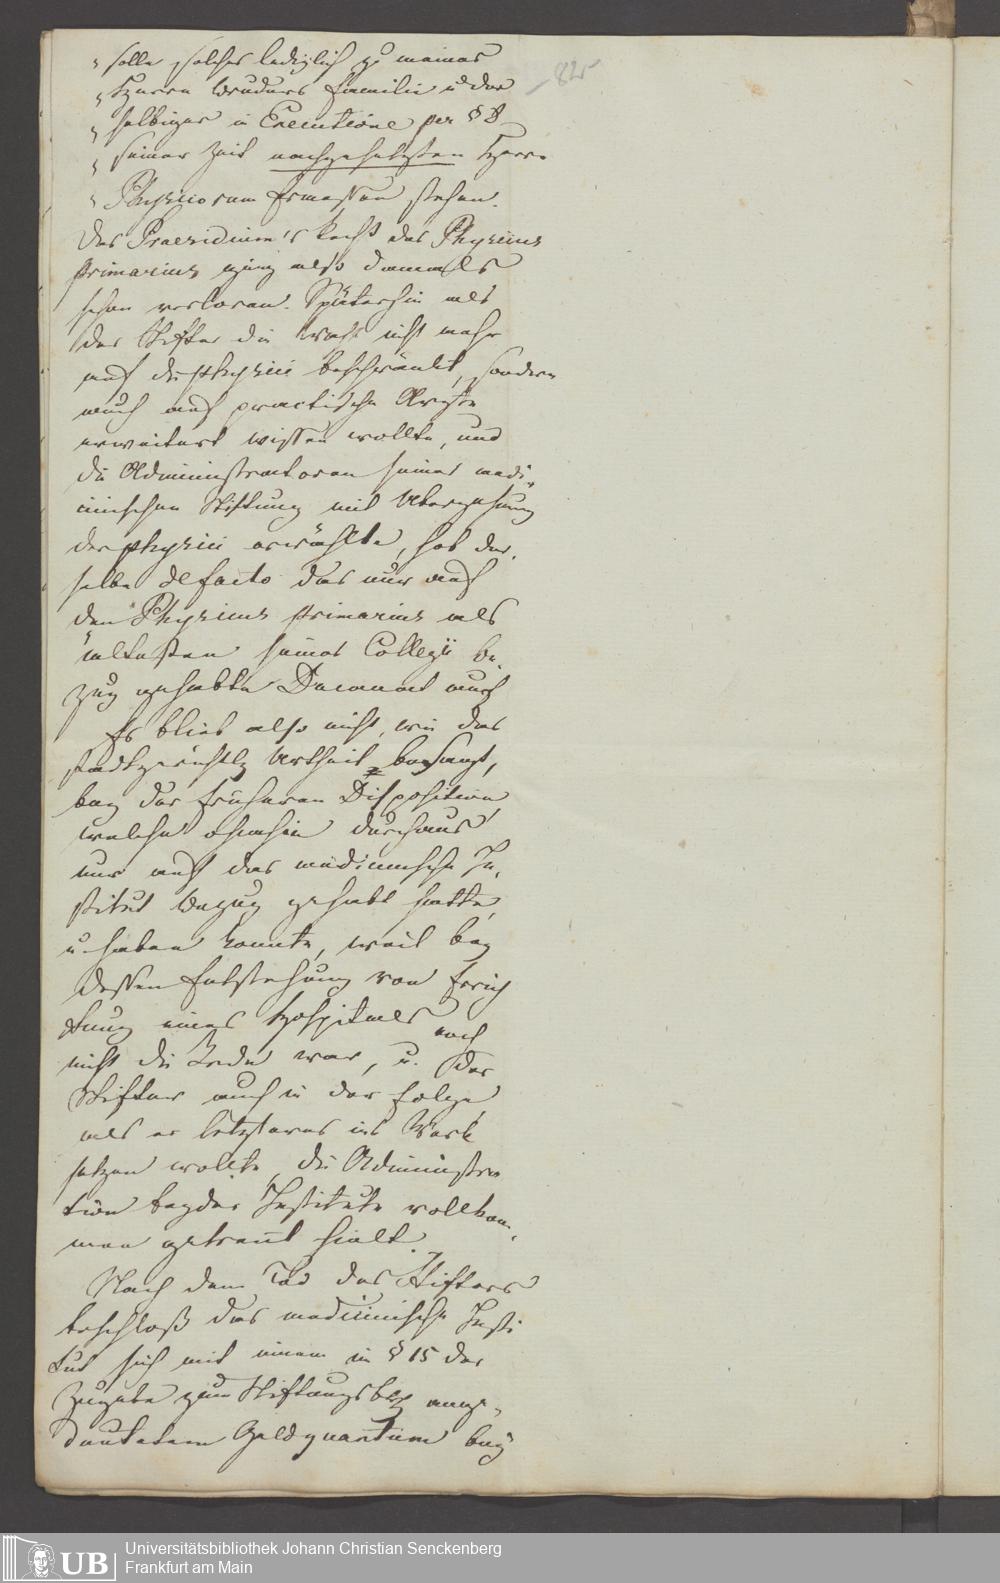 " solle, solches lediglich zu meines
" Herrn Bruders Familie u der
" selbigen in Executione per § 8
" seiner Zeit nachgesetzten Herrn
" Physicorum Ermessen stehen.
Das Praesidium's Recht des Physicus
primarius ging also damals
schon verloren. Späterhin als
der Stifter die Wahl nicht mehr
auf die physici beschränkt, sondern
auch auf practische Aerzte
erweitert wissen wollte, und
die Administratoren seiner medi-
cinischen Stiftung mit Uebergehung
der physici erwählte, hob der-
selbe de facto das nur auf
den Physicus primarius als
ältesten seines Collegii be-
zug gehabte Decanat auch
Es blieb also nicht, wie das
stadtgerichtl Urtheil besagt,
bey der früheren Disposition,
welche ohnehin durchaus
nur auf das medicinische In-
stitut Bezug gehabt hatte,
u haben konnte, weil bey
dessen Entstehung von Errich
tung eines Hospitals noch
nicht die Rede war, u. der
Stifter auch in der Folge
als er letzteres ins Werk
setzen wollte, die Administra
tion beyder Institute vollkom-
men getrennt hielt.
Nach dem Tod des Stifters
beschloß das medicinische Insti
tut sich mit einem in § 15 der
Zugabe zum Stiftungsbrf ange-
deuteten Geldquantum bey
825
UB
Universitätsbibliothek Johann Christian Senckenberg
Frankfurt am Main